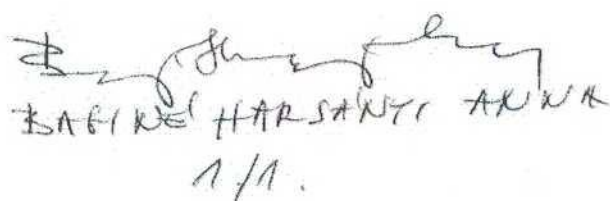 BAGINÉ HARSÁNYI ANNA
1/1.